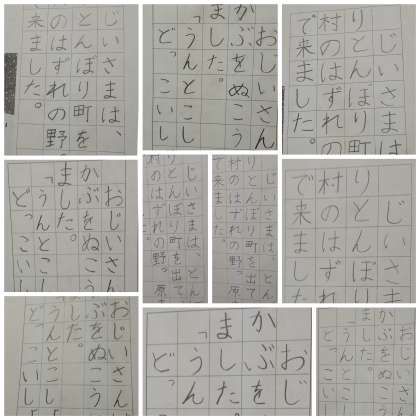 じいさまは、
とんぼり町を
のはずれの野
来ました。
おじいさん
かぶをぬこう
ました。
「うんとこし
どっこいし
じいさま
りとんぼり町
村のはずれの
で来ました。
おじいさん
かぶをぬこう
ました。
「うんとこし
どっこいし
じいさまは、とん
りとんぼり町を出て
村のはずれの野。原
じいさまは、とん
りとんぼり町を出て
村のはずれの野。原
で来ました。
じいさ
りとんぼり
村のはずれ
で来ました
おじいさん
ぶをぬこう
した。
うんとこし
どっこいし
おじ
かぶを
また
「うん
どっ
おじいさん
かぶをぬこ
ました。
「うんとこ
どっこい